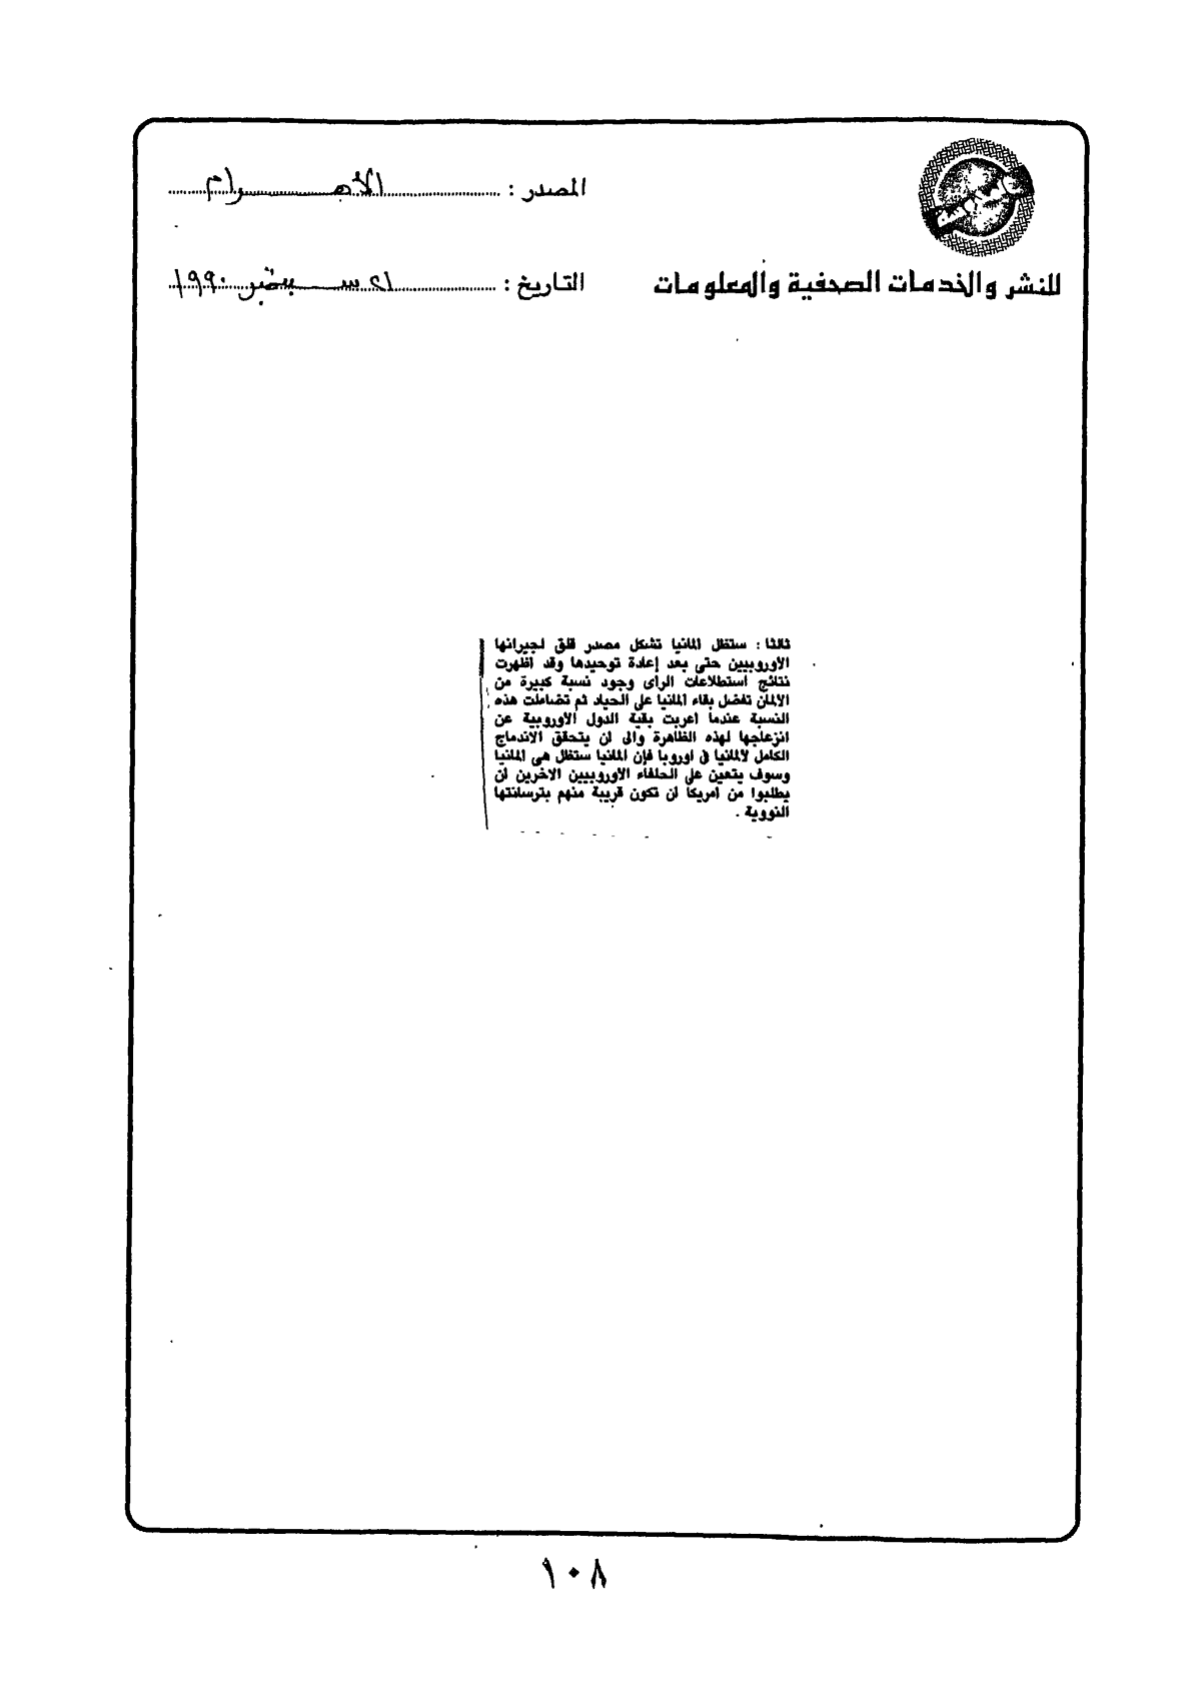 المصدر : الأهرام
للنشر والخدمات الصحفية والمعلومات
التاريخ : ٢١ سبتمبر ١٩٩٠
ثالثا : ستظل المانيا تشكل مصدر قلق لجيرانها
الأوروبيين حتى بعد إعادة توحيدها وقد اظهرت
نتائج استطلاعات الراى وجود نسبة كبيرة من
الالمان تفضل بقاء المانيا على الحياد ثم تضاءلت هذه
النسبة عندما اعربت بقية الدول الأوروبية عن
انزعاجها لهذه الظاهرة والى ان يتحقق الاندماج
الكامل لألمانيا فى اوروبا فإن المانيا ستظل هى المانيا
وسوف يتعين على الحلفاء الأوروبيين الآخرين ان
يطلبوا من امريكا ان تكون قريبة منهم بترسانتها
النووية .
١٠٨